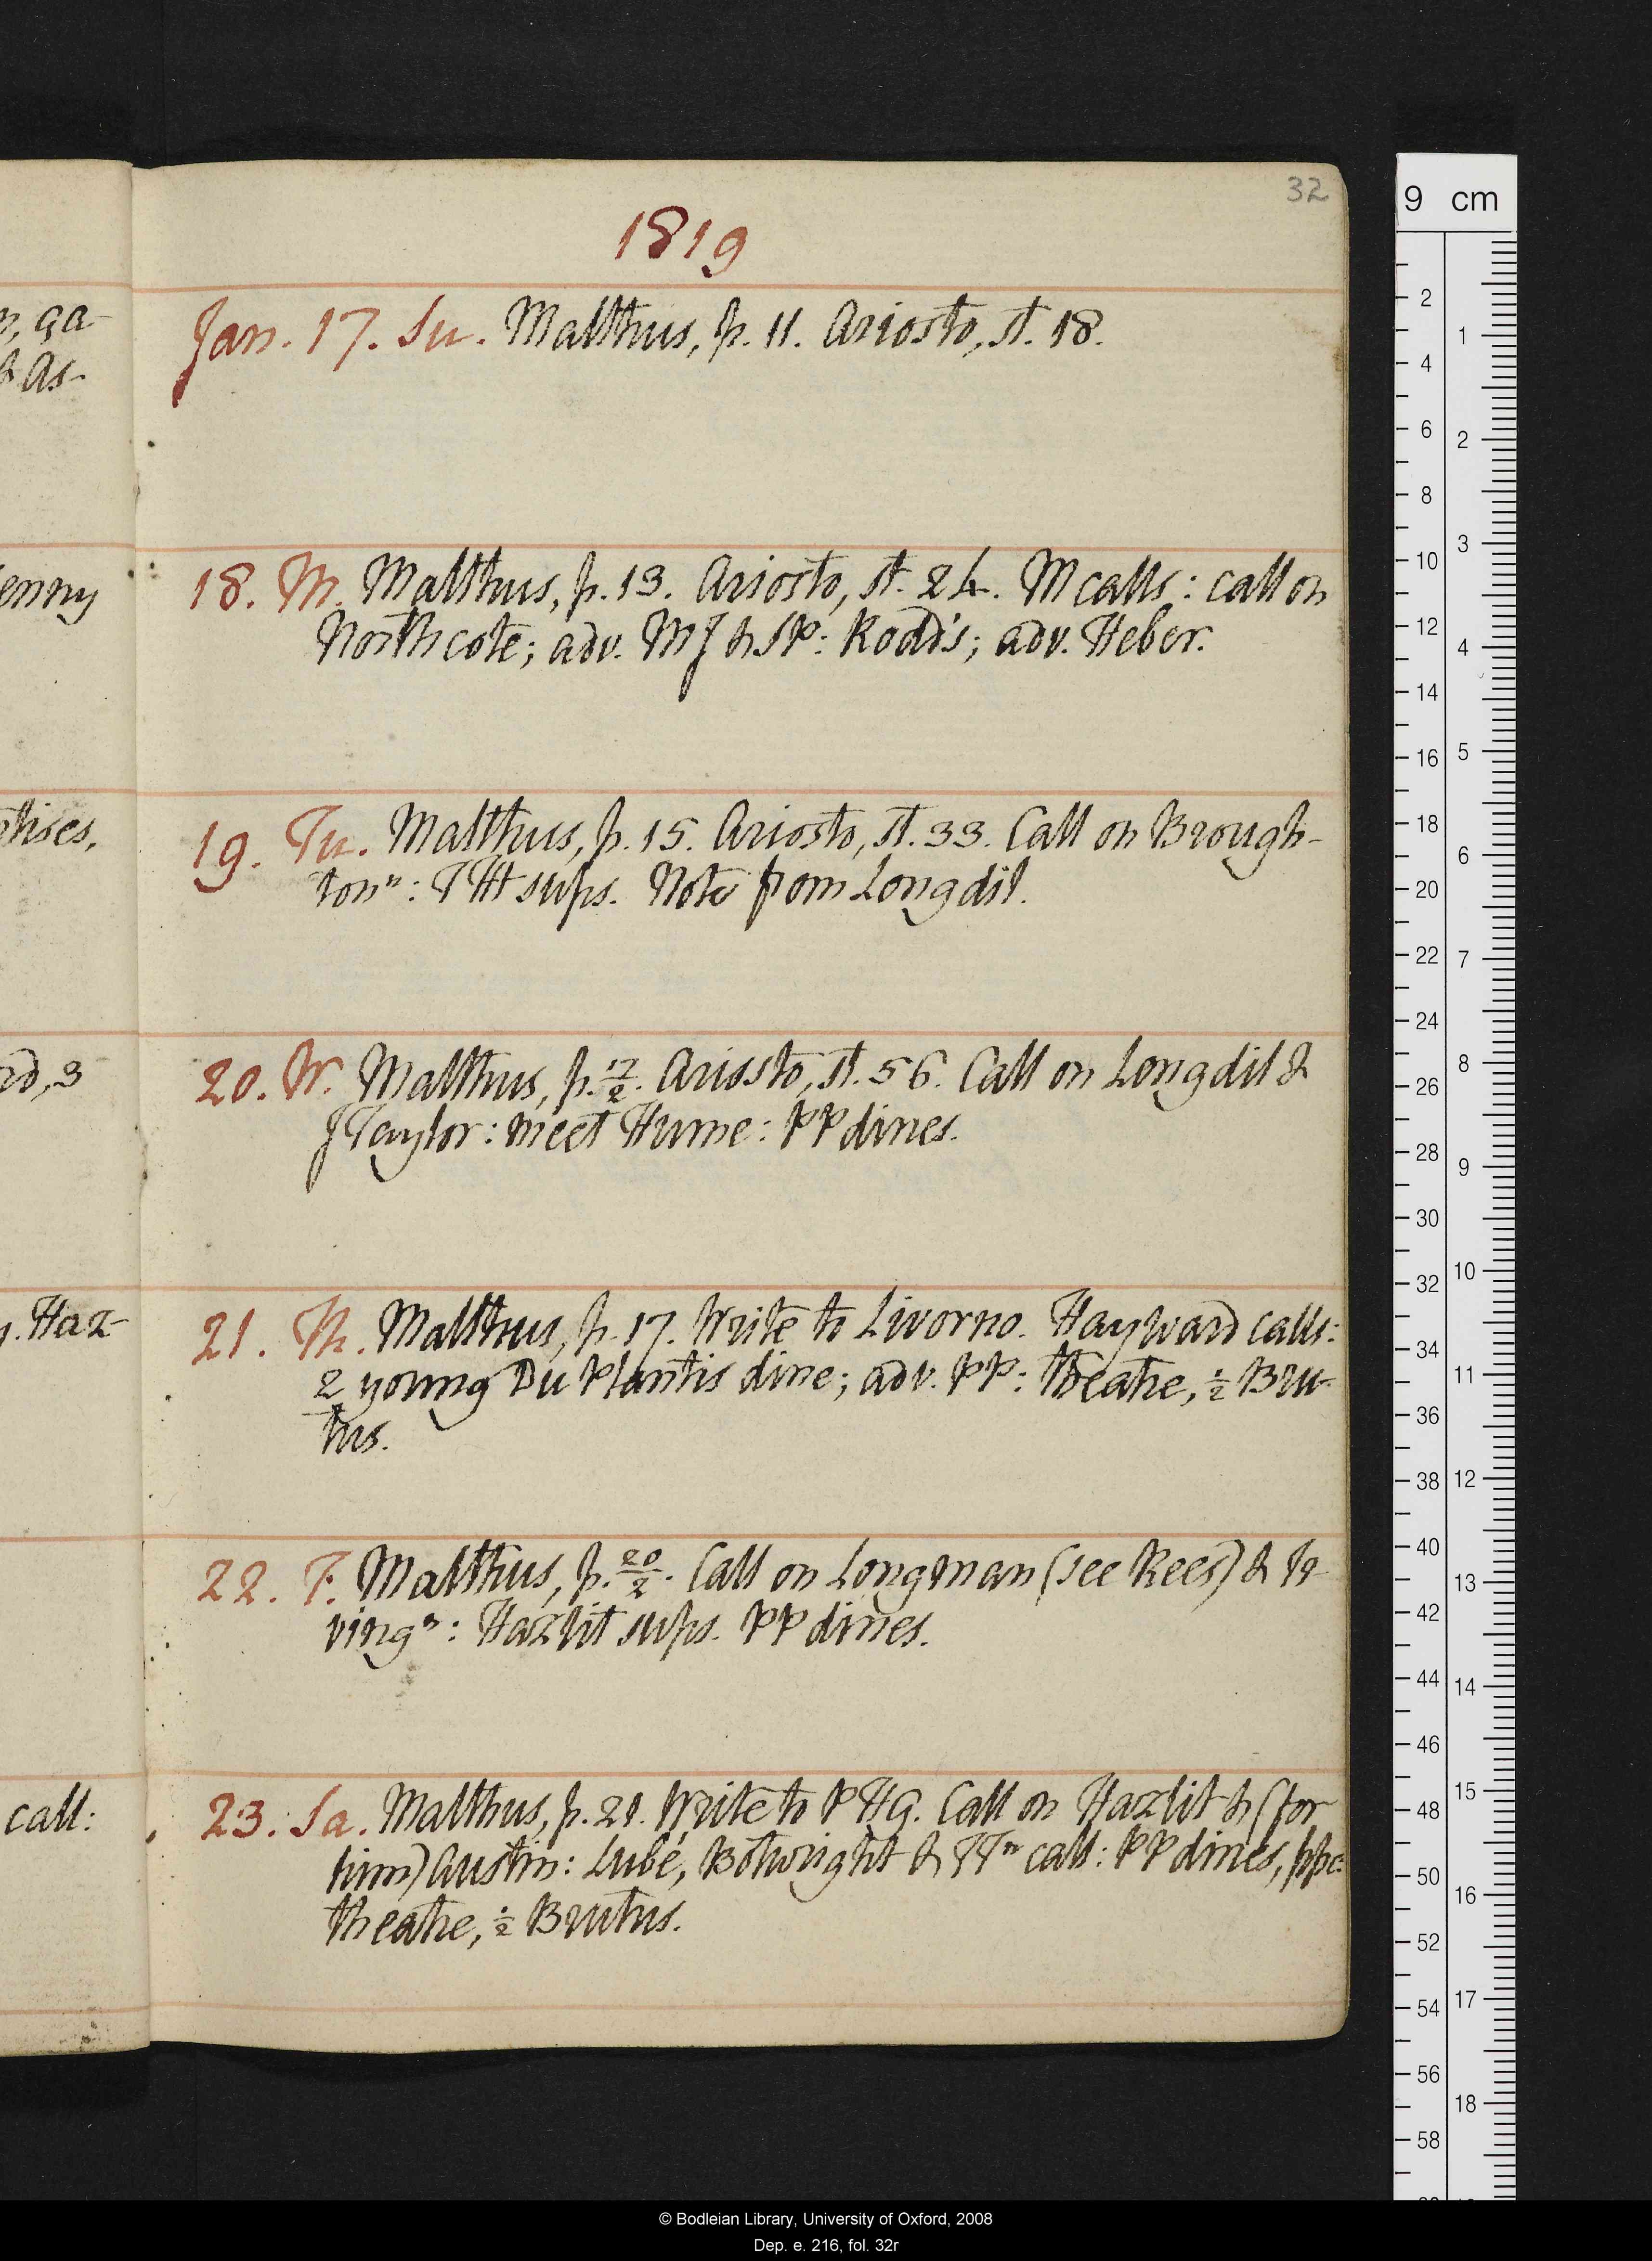 32
1819
n, ga-
& As-
Jan. 17. Su. Malthus, p. 11. Ariosto, st. 18.
enny
18. M. Malthus, p. 13. Ariosto, st. 24. M calls: call on
Northcote; adv. MJ & SP: Rodd's; adv. Heber.
tises.
19. Tu. Malthus, p. 15. Ariosto, st. 33. Call on Brough-
tonⁿ: THt sups. Note from Longdil.
rd, 3
20. W. Malthus, p. 17/2. Ariosto, st. 56. Call on Longdil &
JTaylor: meet Hume: PP dines.
Haz-
21. Th. Malthus, p. 17. Write to Livorno. Hayward calls:
2 young Du Plantis dine; adv. PP: theatre, ½ Bru-
tus.
22. F. Malthus, p. 20/2. Call on Longman (see Rees) & Ir-
vingⁿ: Hazlit sups. PP dines.
call:
23. Sa. Malthus, p. 21. Write to PHG. Call on Hazlit & (for
him) Austin: Lubé, Botwright & TTⁿ call: PP dines, ppc:
theatre, ½ Brutus.
9 cm
2
4
6
8
10
12
14
16
18
20
22
24
26
28
30
32
34
36
38
40
42
44
46
48
50
52
54
56
58
1
2
3
4
5
6
7
8
9
10
11
12
13
14
15
16
17
18
© Bodleian Library, University of Oxford, 2008
Dep. e. 216, fol. 32r